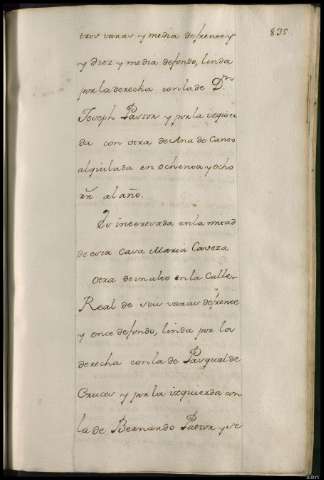 835
tres varas y media de frente y
y diez y media de fondo, linda
por la derecha con la de Dn
Joseph Pastor y por la izquier
da con otra de Ana de Canos
alquilada en ochenta y ocho
rs. al año.
Es interesada en la mitad
de esta Casa Maria Caveza
Otra de un alto en la Calle
Real de seis varas de frente
y once de fondo, linda por la
derecha con la de Pasqual de
Cruces y por la izquierda con
la de Bernardo Pastor y se